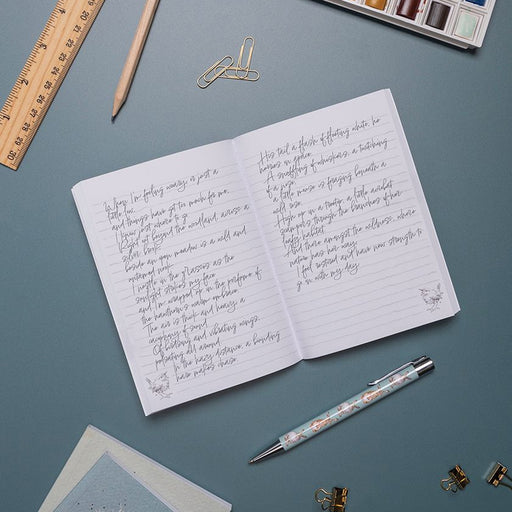 When I'm feeling weary, or just a
little low,
and things have got too much for me,
I know just where to go.
Right out beyond the woodland, across a
silver brook,
beside an open meadow is a wild and
untamed nook.
I nestle in the grasses as the
sunlight strokes my face,
and I'm wrapped up in the perfume of
the hawthorn's warm embrace.
The air is thick and heavy, a
cacophony of sound
Of buzzing and vibrating wings,
pulsating all around.
In the hazy distance, a bounding
hare makes chase.
His tail a flash of fleeting white, he
in grace.
A snuffling of whiskers, a twitching
of a nose,
a little mouse is foraging beneath a
wild rose.
High up in a treetop a little acrobat
scampers through the branches of her
leafy habitat.
And there amongst the wilderness, where
nature has her way,
I feel restored and have new strength to
go on with my day.